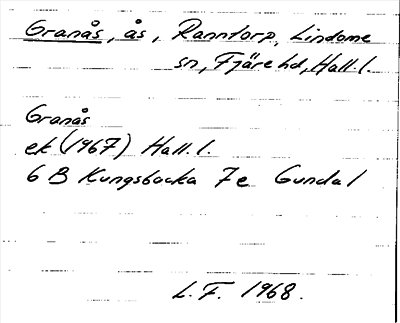 Granås, ås, Ranntorp, Lindome
sn, Fjäre hd, Hall. l.
Granås
ek (1967) Hall. l.
6 B Kungsbacka 7e Gundal
L.F. 1968.